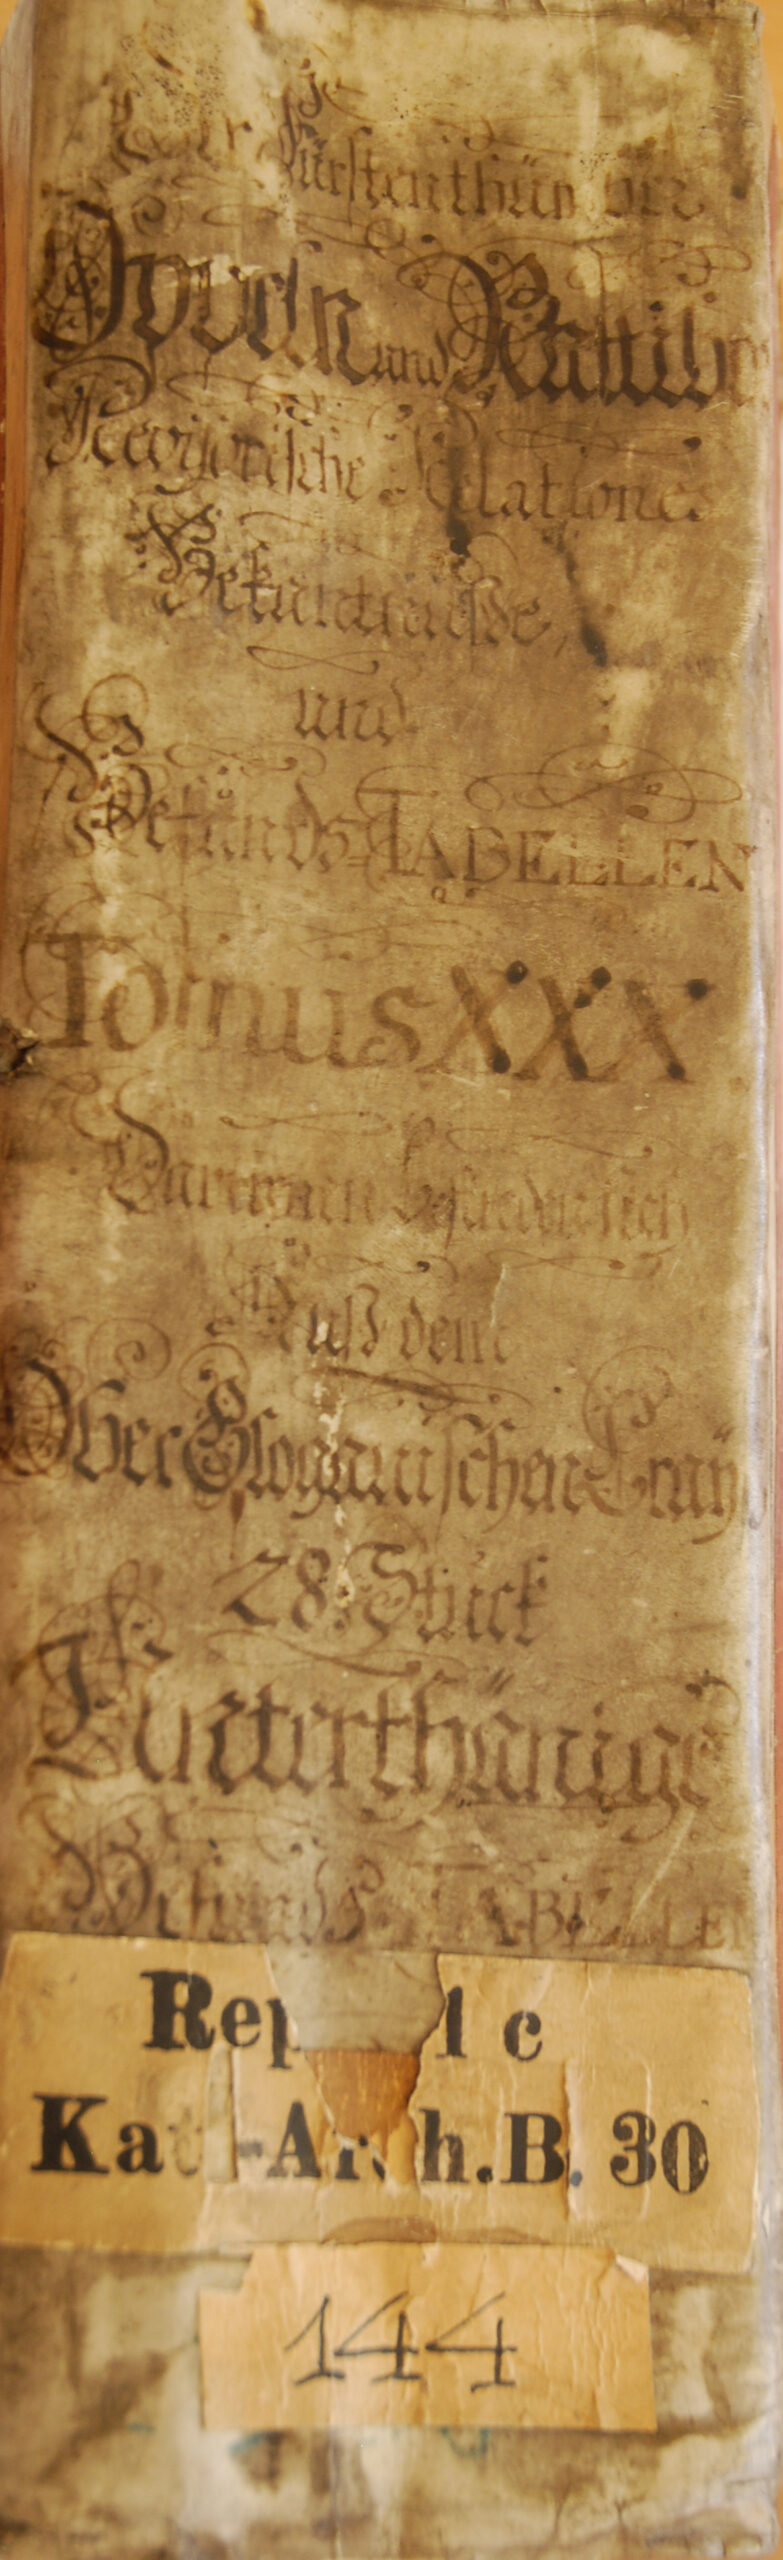 Der Fürstenthümber
Oppeln und Rattibo
Revisorische Relationes
Bekäntnüsse,
und
Befunds-TABELLEN
Tomus XXX
Darinnen befindlich
Auß dem
Ober Glogauischen Crayß
28. Stück
Unterthänige
Befunds TABELLEN
Rep 1 c
Kat-Arch. B. 30
144